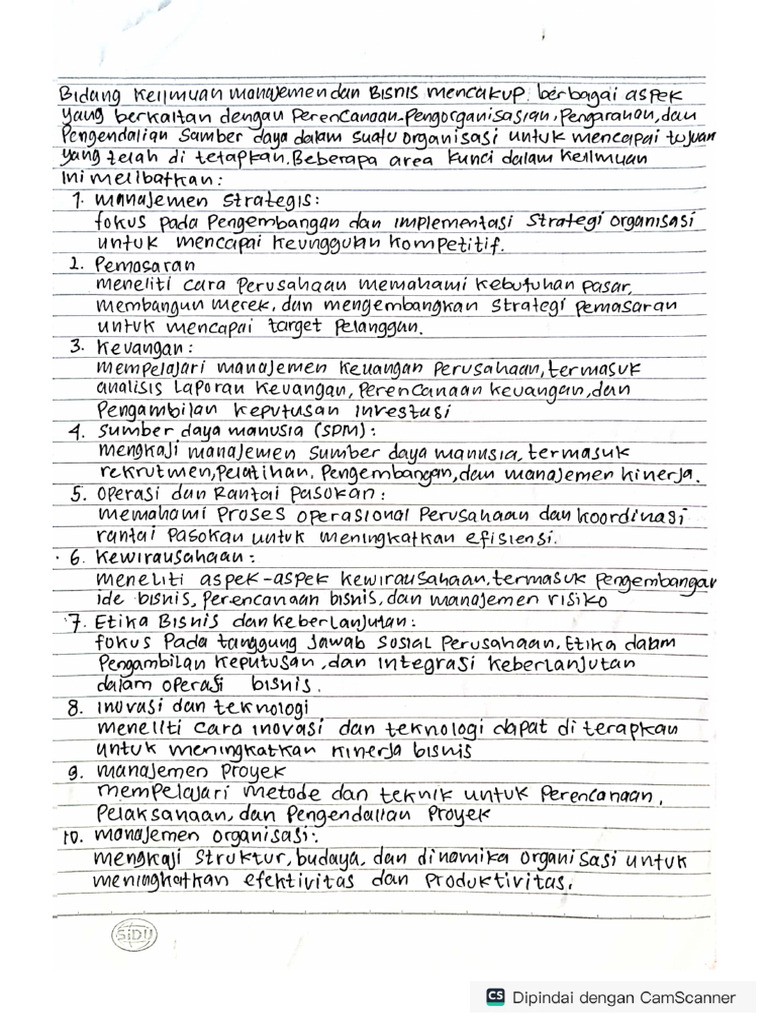 Bidang keilmuan manajemen dan Bisnis mencakup berbagai aspek
yang berkaitan dengan perencanaan, Pengorganisasian, Pengarahan, dan
Pengendalian sumber daya dalam suatu organisasi untuk mencapai tujuan
yang telah di tetapkan. Beberapa area kunci dalam keilmuan
ini melibatkan:
1. Manajemen strategis:
fokus pada Pengembangan dan implementasi strategi organisasi
untuk mencapai keunggulan kompetitif.
2. Pemasaran
meneliti cara perusahaan memahami kebutuhan pasar,
membangun merek, dan mengembangkan strategi pemasaran
untuk mencapai target pelanggan.
3. Keuangan:
mempelajari manajemen keuangan perusahaan, termasuk
analisis laporan keuangan, perencanaan keuangan, dan
Pengambilan keputusan investasi
4. Sumber daya manusia (SDM):
mengkaji manajemen sumber daya manusia, termasuk
rekrutmen, pelatihan, pengembangan, dan manajemen kinerja.
5. Operasi dan Rantai pasokan:
memahami proses operasional perusahaan dan koordinasi
rantai pasokan untuk meningkatkan efisiensi.
6. Kewirausahaan:
meneliti aspek-aspek kewirausahaan, termasuk pengembangan
ide bisnis, perencanaan bisnis, dan manajemen risiko
7. Etika Bisnis dan keberlanjutan:
fokus pada tanggung jawab sosial perusahaan, Etika dalam
Pengambilan keputusan, dan integrasi keberlanjutan
dalam operasi bisnis.
8. Inovasi dan teknologi
meneliti cara inovasi dan teknologi dapat di terapkan
untuk meningkatkan kinerja bisnis
9. Manajemen proyek
mempelajari metode dan teknik untuk perencanaan,
Pelaksanaan, dan Pengendalian Proyek
10. Manajemen organisasi:
mengkaji struktur, budaya, dan dinamika organisasi untuk
meningkatkan efektivitas dan produktivitas.
SiDU
CS Dipindai dengan CamScanner